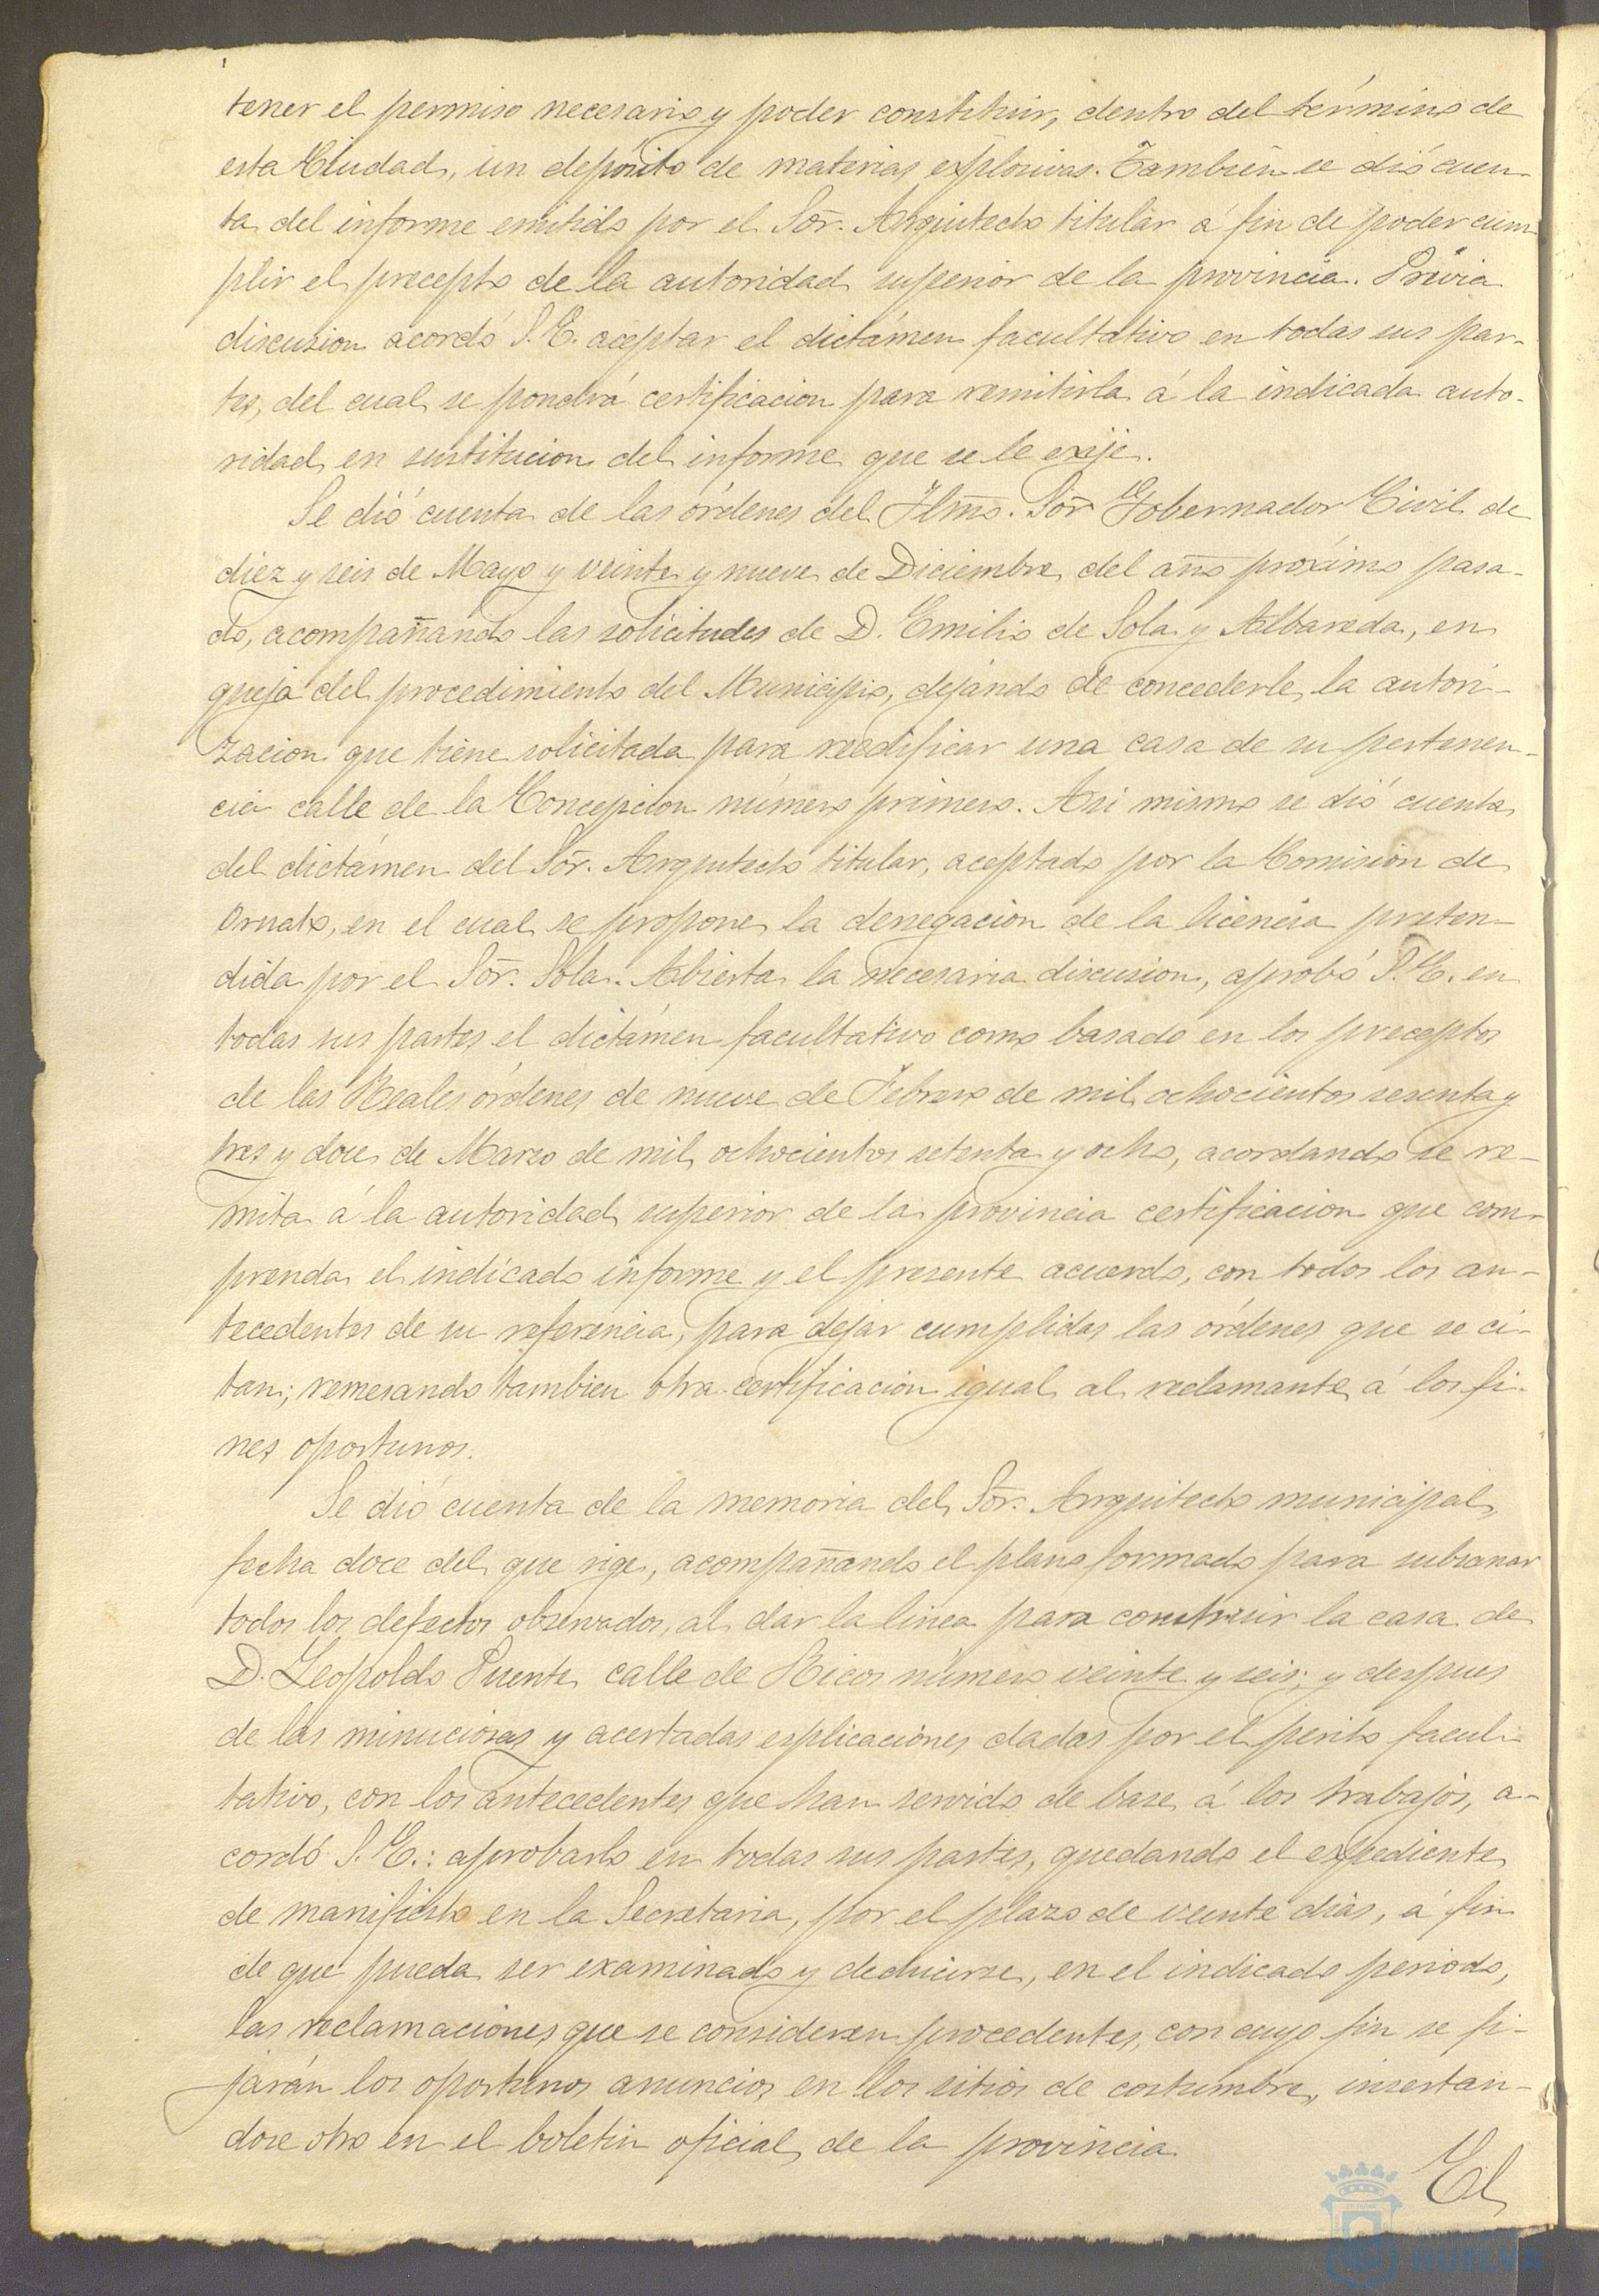 tener el permiso necesario y poder constituir, dentro del término de
esta Ciudad, un depósito de materias explosivas. Tambien se dió cuen-
ta del informe emitido por el Sōr. Arquitecto titular á fin de poder cum-
plir el precepto de la autoridad superior de la provincia. Prévia
discusion acordó S. E. aceptar el dictámen facultativo en todas sus par-
tes, del cual se pondrá certificacion para remitirla á la indicada auto-
ridad, en sustitucion del informe que se le exije.
Se dió cuenta de las órdenes del Ilmo. Sōr Gobernador Civil de
diez y seis de Mayo y veinte y nueve de Diciembre, del año próximo pasa-
do, acompañando las solicitudes de D. Emilio de Sola y Albareda, en
queja del procedimiento del Municipio, dejando de concederle la autori-
zacion que tiene solicitada para reedificar una casa de su pertenen-
cia calle de la Concepcion número primero. Asi mismo se dió cuenta
del dictámen del Sōr. Arquitecto titular, aceptado por la Comision de
Ornato, en el cual se propone la denegacion de la licencia preten-
dida por el Sōr. Sola. Abierta la necesaria discusion, aprobó S. E. en
todas sus partes el dictámen facultativo como basado en los preceptos
de las Reales órdenes de nueve de Febrero de mil ochocientos sesenta y
tres y doce de Marzo de mil ochocientos setenta y ocho, acordando se re-
mita á la autoridad superior de la provincia certificacion que com-
prenda el indicado informe y el presente acuerdo, con todos los an-
tecedentes de su referencia, para dejar cumplidas las órdenes que se ci-
tan; remesando tambien otra certificacion igual al reclamante á los fi-
nes oportunos.
Se dió cuenta de la memoria del Sōr. Arquitecto municipal,
fecha doce del que rige, acompañando el plano formado para subsanar
todos los defectos observados, al dar la linea para construir la casa de
D. Leopoldo Puente calle de Ricos número veinte y seis; y despues
de las minuciosas y acertadas esplicaciones dadas por el perito facul-
tativo, con los antecedentes que han servido de base á los trabajos, a-
cordó S. E.: aprobarlo en todas sus partes, quedando el espediente
de manifiesto en la Secretaria, por el plazo de veinte dias, á fin
de que pueda ser examinado y deducirse, en el indicado periodo,
las reclamaciones que se consideren procedentes, con cuyo fin se fi-
jarán los oportunos anuncios en los sitios de costumbre, insertan-
dose otro en el boletin oficial de la provincia.
El
HUELVA